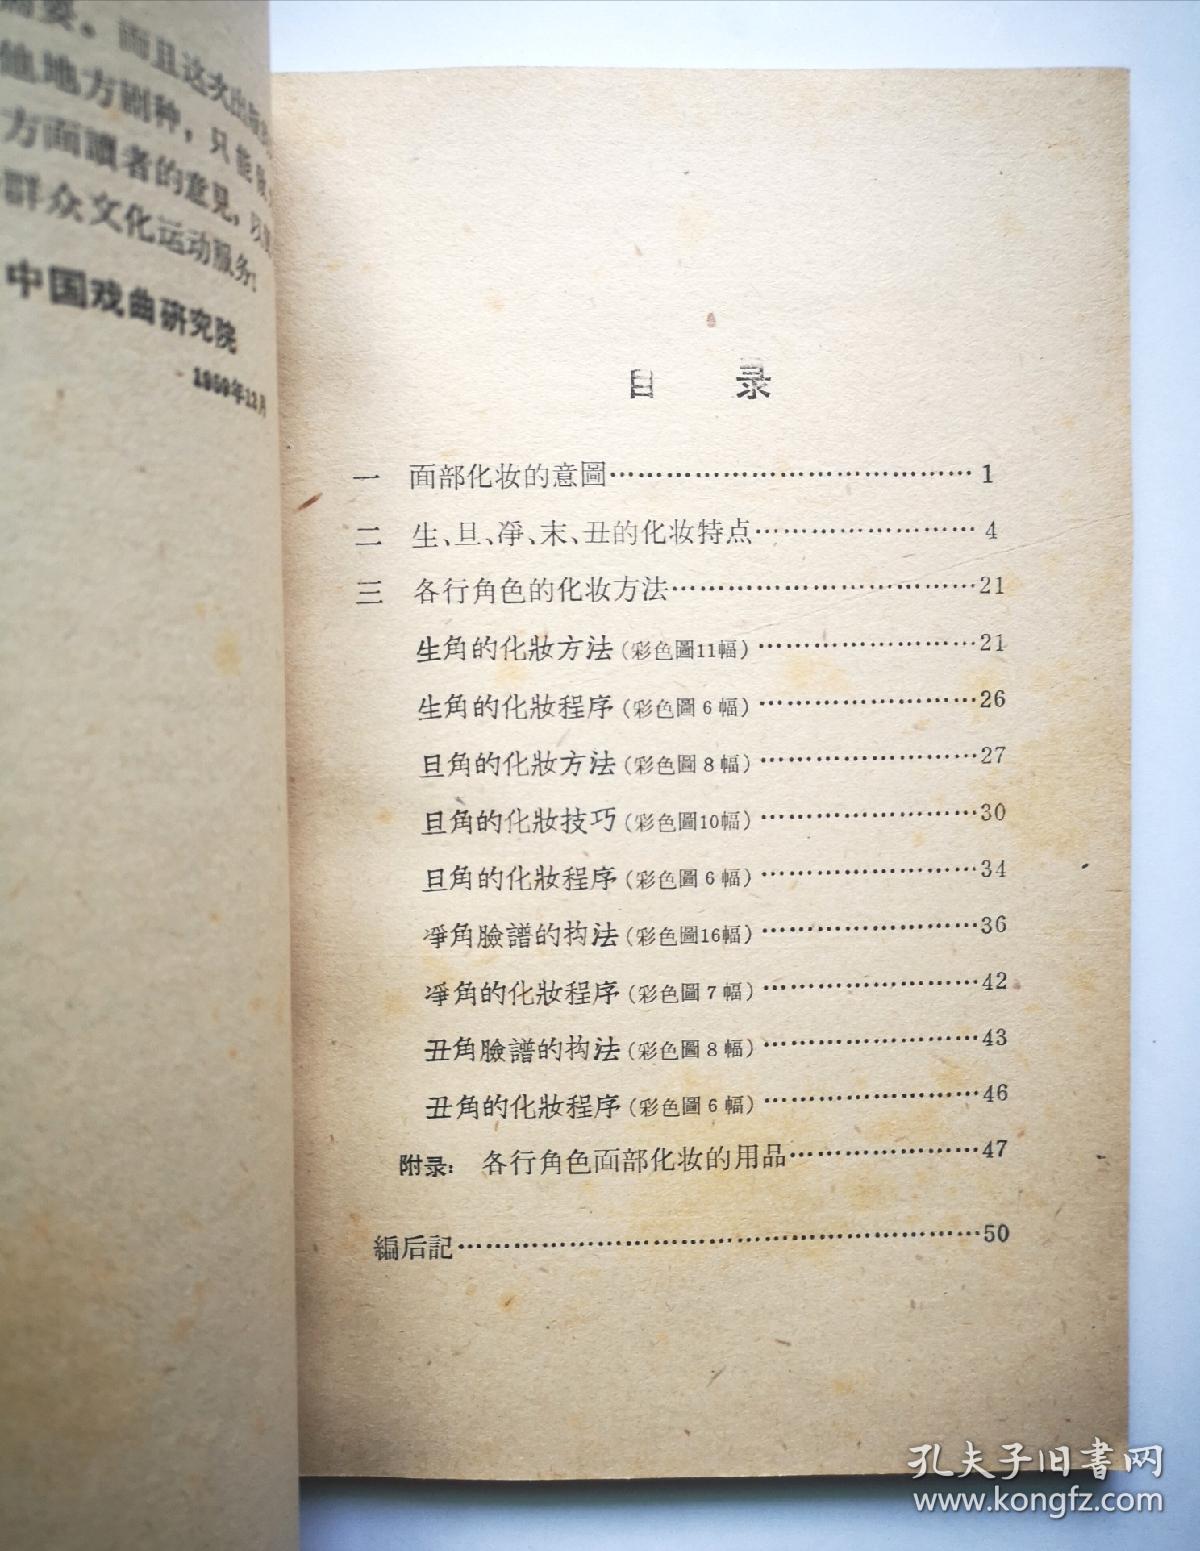 需要。而且这次出
他地方剧种，只能
方面讀者的意见，以
群众文化运动服务！
中国戏曲研究院
1959年12月
目 录
一 面部化妆的意圖…………………………………1
二 生、旦、凈、末、丑的化妆特点……………………4
三 各行角色的化妆方法……………………………21
生角的化妝方法(彩色圖11幅)……………………21
生角的化妝程序(彩色圖6幅)……………………26
旦角的化妝方法(彩色圖8幅)……………………27
旦角的化妝技巧(彩色圖10幅)……………………30
旦角的化妝程序(彩色圖6幅)……………………34
凈角臉譜的构法(彩色圖16幅)……………………36
凈角的化妝程序(彩色圖7幅)……………………42
丑角臉譜的构法(彩色圖8幅)……………………43
丑角的化妝程序(彩色圖6幅)……………………46
附录：各行角色面部化妆的用品…………………47
編后記…………………………………………………50
孔夫子旧書网
www.kongfz.com